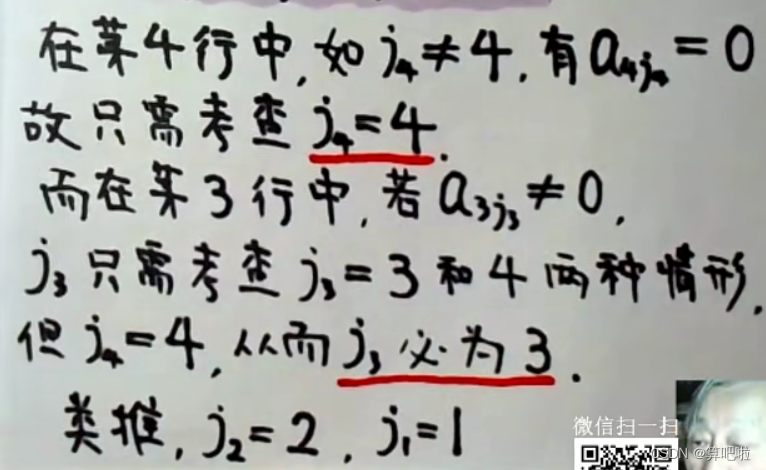 在第4行中,如 j₄≠4,有 a₄ⱼ₄=0
故只需考查 j₄=4.
而在第3行中,若 a₃ⱼ₃≠0,
j₃ 只需考查 j₃=3 和 4 两种情形,
但 j₄=4,从而 j₃ 必为 3.
类推, j₂=2, j₁=1
微信扫一扫
CSDN @算吧啦